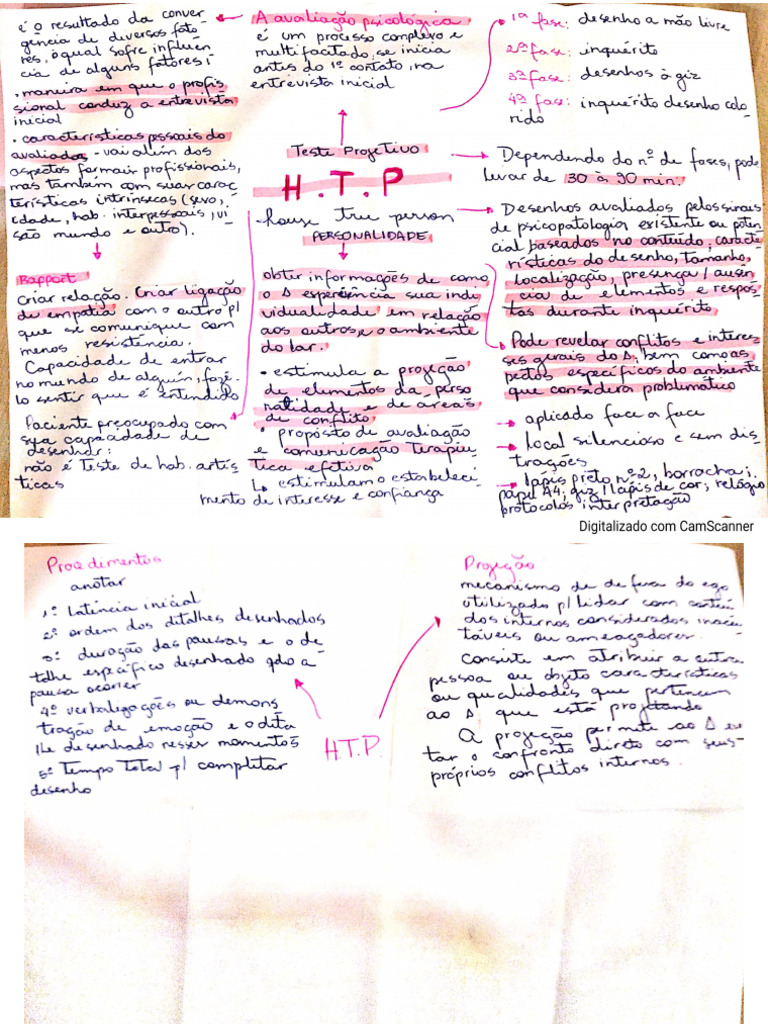 é o resultado da conver
gência de diversos fato
res, o qual sofre influên
cia de alguns fatores:
• maneira em que o profis
sional conduz a entrevista
inicial
• características pessoais do
avaliador - vai além dos
aspectos formais profissionais,
mas também com suas carac
terísticas intrínsecas (sexo,
idade, hab. interpessoais, vi
são mundo e outro).
Rapport
Criar relação. Criar ligação
de empatia com o outro p/
que se comunique com
menos resistência.
Capacidade de entrar
no mundo de alguém, fazê-
lo sentir que é entendido
Paciente preocupado com
sua capacidade de
desenhar:
não é Teste de hab. artís
ticas
A avaliação psicológica
é um processo complexo e
multifacitado, se inicia
antes do 1º contato, na
entrevista inicial
Teste Projetivo
H.T.P
house tree person
PERSONALIDADE
obter informações de como
o Δ experiência sua indi
vidualidade em relação
aos outros, e o ambiente
do lar.
• estimula a projeção
de elementos da perso
nalidade e de áreas
de conflito
• propósito de avaliação
e comunicação terapêu
tica efetiva
↳ estimulam o estabeleci
mento de interesse e confiança
1ª fase: desenho a mão livre
2ª fase: inquérito
3ª fase: desenhos à giz
4ª fase: inquérito desenho colo
rido
Dependendo do nº de fases, pode
levar de 30 à 90 min.
Desenhos avaliados pelos sinais
de psicopatologia existente ou poten
cial baseados no conteúdo, caracte
rísticas do desenho, tamanho,
localização, presença / ausên
cia de elementos e respos
tas durante inquérito
Pode revelar conflitos e interes
ses gerais do Δ, bem como as
pectos específicos do ambiente
que considera problemático
→ aplicado face a face
→ local silencioso e sem dis
trações
→ lápis preto nº 2, borracha;
papel A4; giz / lápis de cor; relógio
protocolos interpretação
Digitalizado com CamScanner
Procedimentos
anotar
1º Latência inicial
2º ordem dos detalhes desenhados
3º duração das pausas e o de
talhe específico desenhado qdo a
pausa ocorrer
4º verbalizações ou demons
tração de emoção e o deta
lhe desenhado nesses momentos
5º Tempo total p/ completar
desenho
H.T.P.
Projeção
mecanismo de defesa do ego
utilizado p/ lidar com conteú
dos internos considerados inacei
táveis ou ameaçadores.
Consiste em atribuir a outra
pessoa ou objeto características
ou qualidades que pertencem
ao Δ que está projetando
A projeção permite ao Δ evi
tar o confronto direto com seus
próprios conflitos internos.